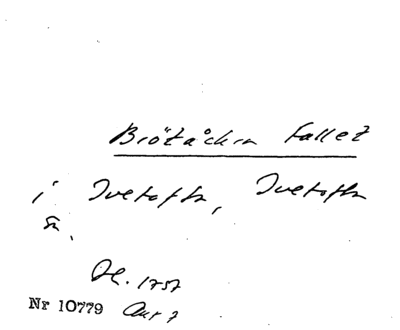 Brötåckra fallet
i Ivetofta, Ivetofta
sn.
Dl. 1757
Nr 10779 Akt 7